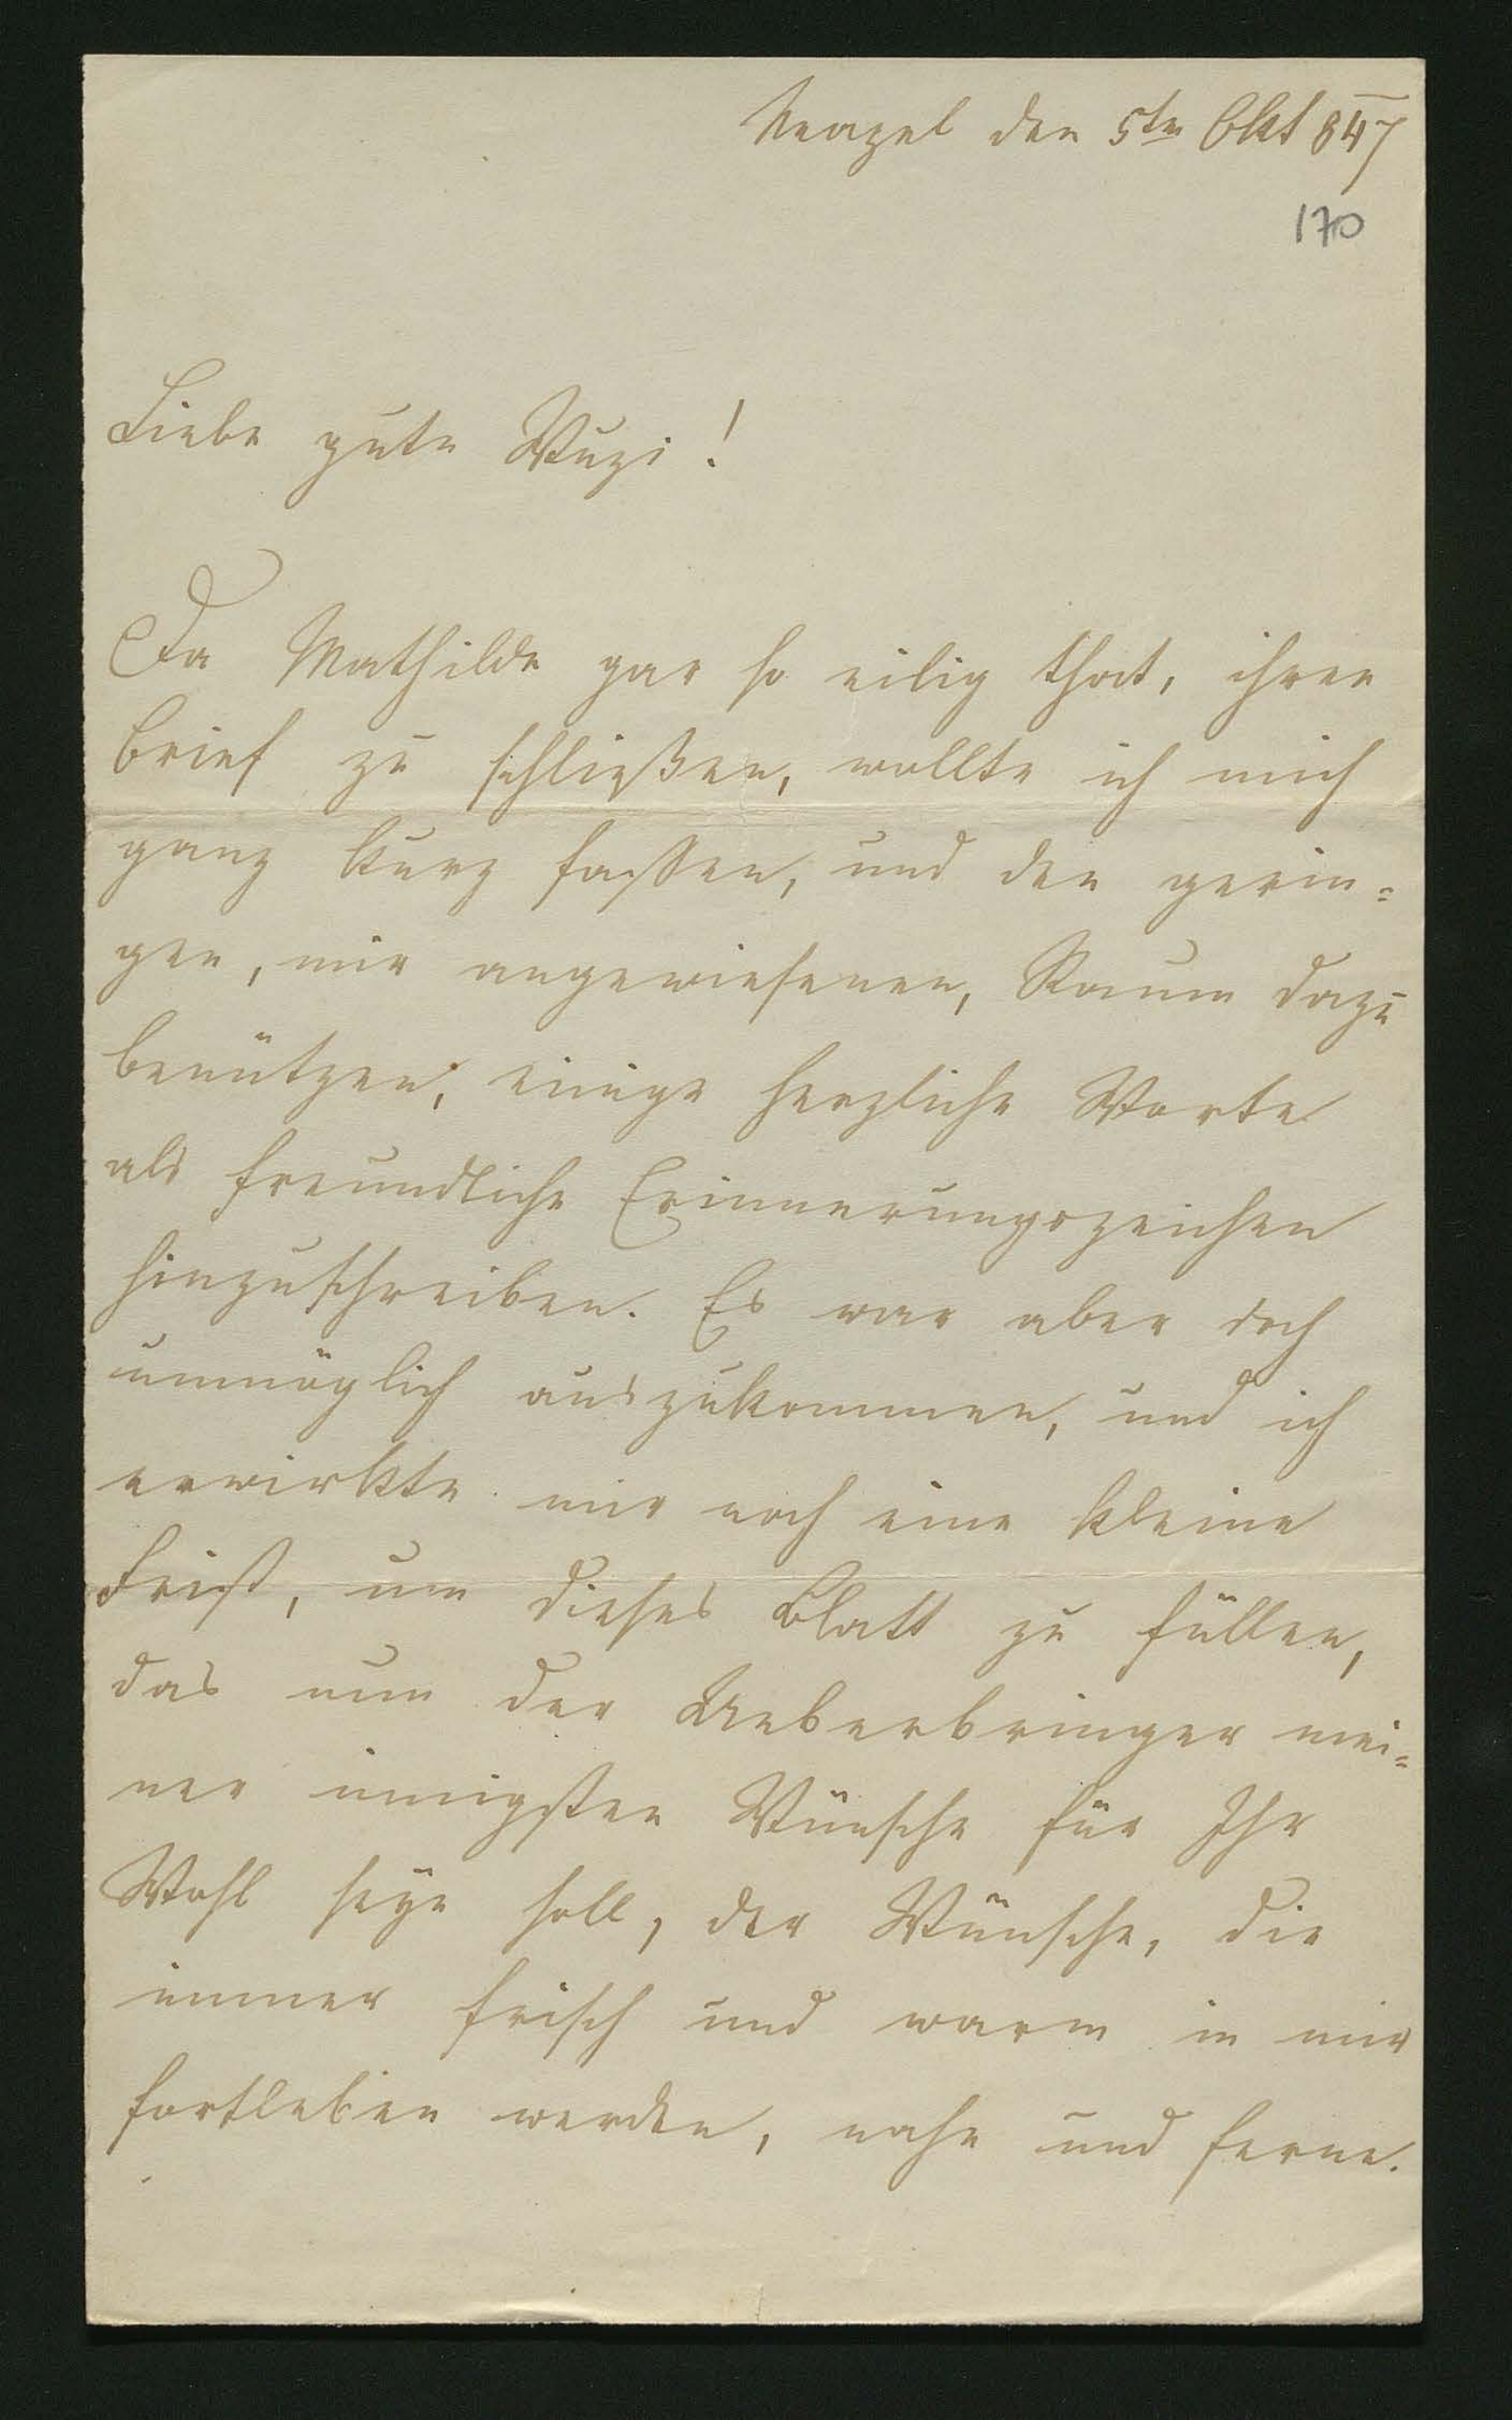 Neapel den 5ten Okt 847
170
Liebe gute Wuzi!
Da Mathilde gar so eilig that, ihren
Brief zu schließen, wollte ich mich
ganz kurz fassen, und den gerin=
gen, mir angewiesenen, Raum dazu
benützen, einige herzliche Worte
als freundliche Erinnerungszeichen
hinzuschreiben. Es war aber doch
unmöglich auszukommen, und ich
erwirkte mir noch eine kleine
Frist, um dieses Blatt zu füllen,
das nun der Ueberbringer mei=
ner innigsten Wünsche für Ihr
Wohl seyn soll, der Wünsche, die
immer frisch und warm in mir
fortleben werden, nahe und ferne.